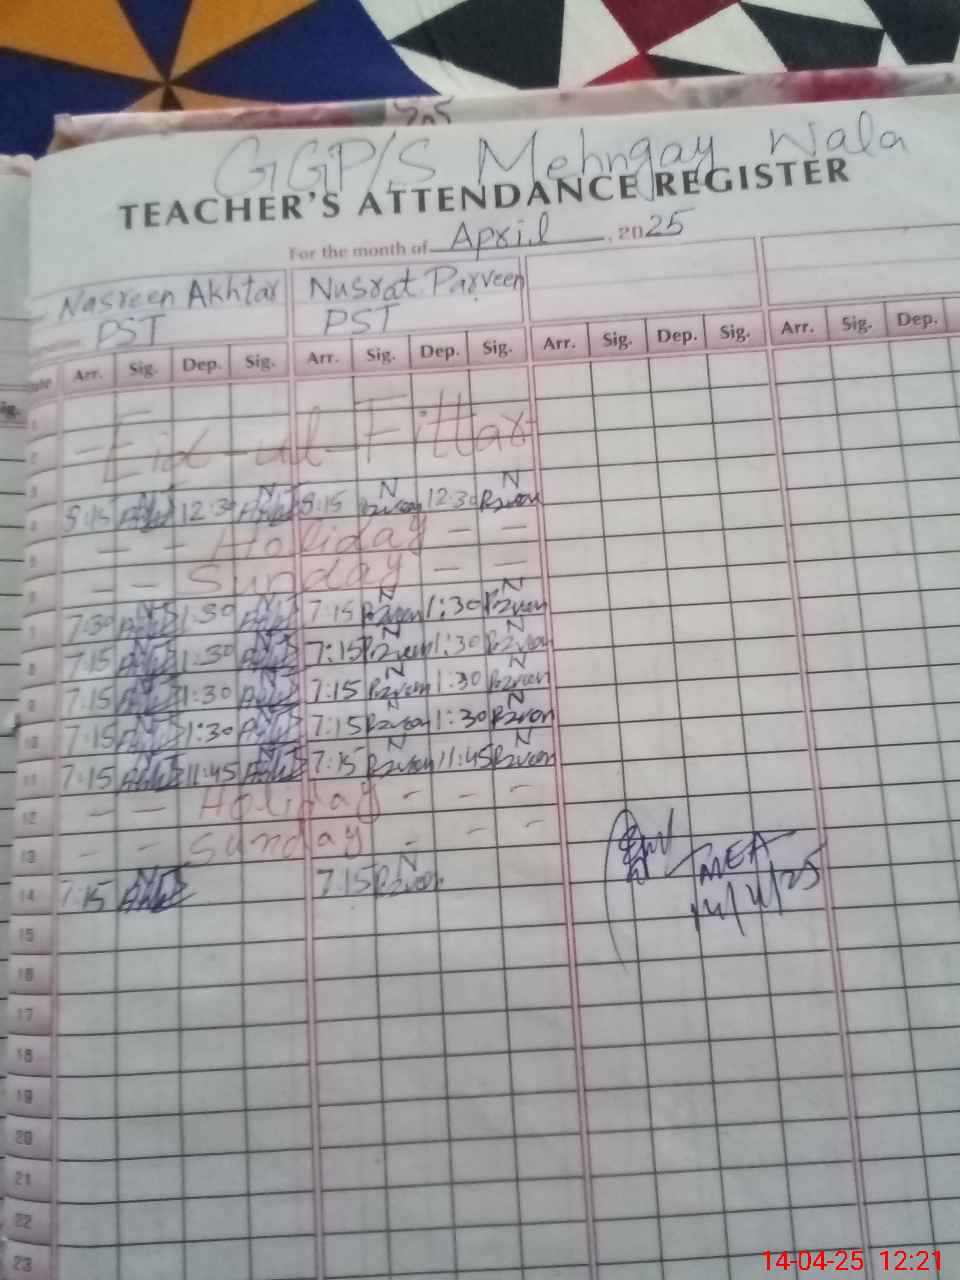 GGP/S Mehngay Wala
TEACHER'S ATTENDANCE REGISTER
For the month of April, 2025
Nasreen Akhtar Nusrat Parveen
PST PST
Arr. Sig. Dep. Sig. Arr. Sig. Dep. Sig. Arr. Sig. Dep. Sig. Arr. Sig. Dep.
1
2 - Eid-ul-Fittar
3
4 8:15 12:30 8:15 N 12:30 N
5 - - Holiday - -
6 - - Sunday - -
7 7:30 1:30 7:15 N 1:30 N
8 7:15 1:30 7:15 N 1:30 N
9 7:15 1:30 7:15 N 1:30 N
10 7:15 1:30 7:15 N 1:30 N
11 7:15 11:45 7:15 N 11:45 N
12 - - Holiday - - -
13 - - Sunday - - -
14 7:15 7:15 N
MEA
14/4/25
15
16
17
18
19
20
21
22
23
14-04-25 12:21